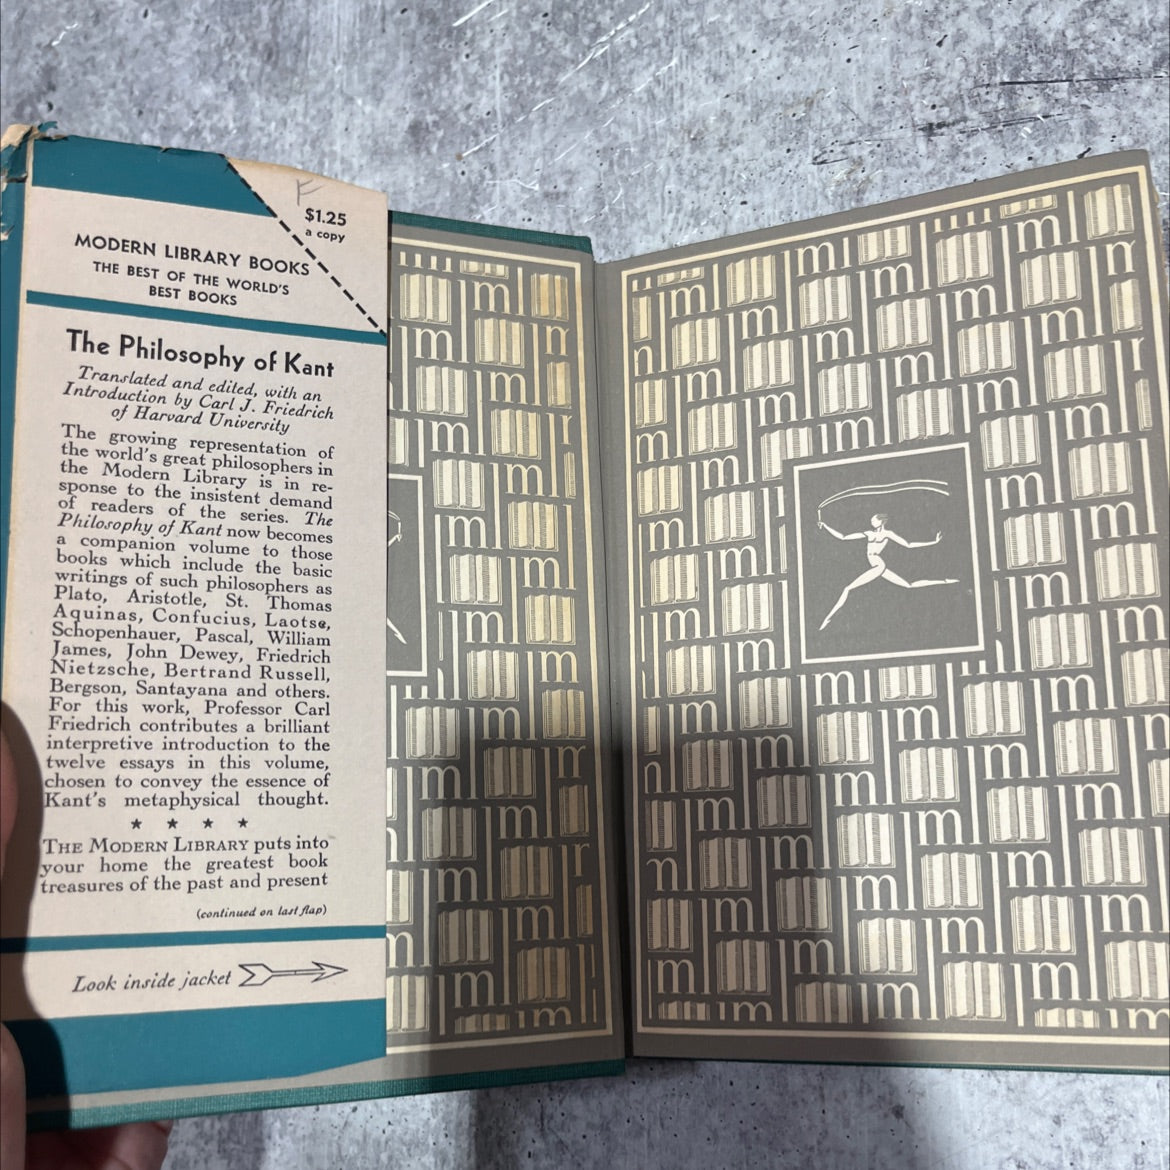 F
$1.25
a copy
MODERN LIBRARY BOOKS
THE BEST OF THE WORLD'S
BEST BOOKS
The Philosophy of Kant
Translated and edited, with an
Introduction by Carl J. Friedrich
of Harvard University
The growing representation of
the world's great philosophers in
the Modern Library is in re-
sponse to the insistent demand
of readers of the series. The
Philosophy of Kant now becomes
a companion volume to those
books which include the basic
writings of such philosophers as
Plato, Aristotle, St. Thomas
Aquinas, Confucius, Laotse,
Schopenhauer, Pascal, William
James, John Dewey, Friedrich
Nietzsche, Bertrand Russell,
Bergson, Santayana and others.
For this work, Professor Carl
Friedrich contributes a brilliant
interpretive introduction to the
twelve essays in this volume,
chosen to convey the essence of
Kant's metaphysical thought.
THE MODERN LIBRARY puts into
your home the greatest book
treasures of the past and present
(continued on last flap)
Look inside jacket